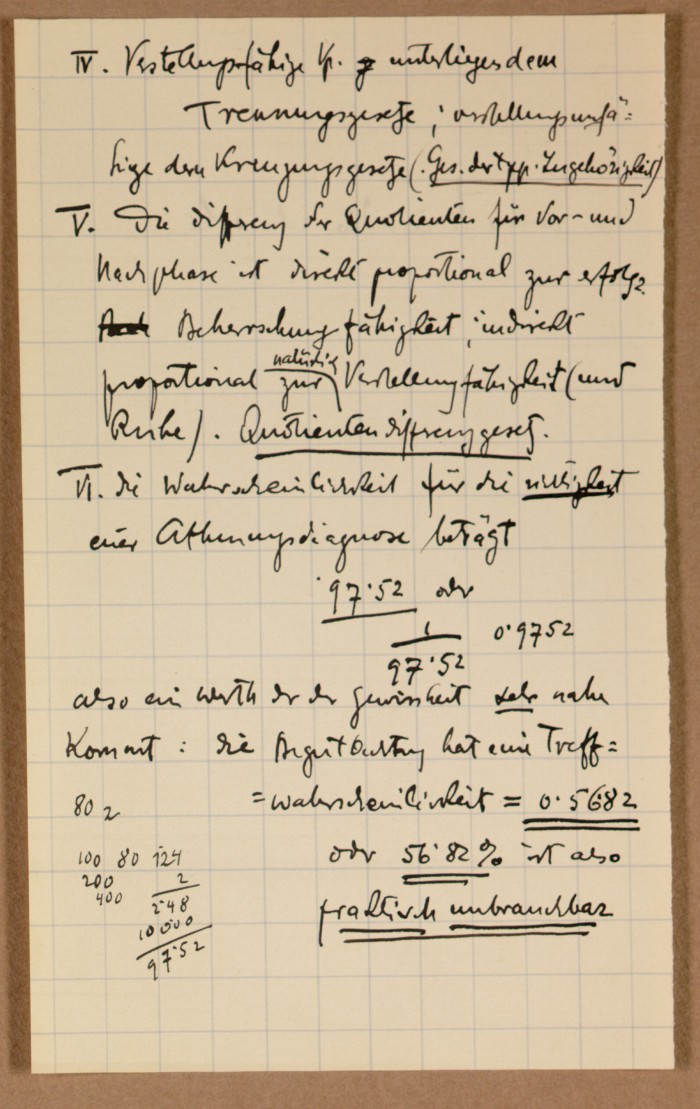 IV. Verstellungsfähige Vp. unterliegen dem
Trennungsgesetze ; verstellungsunfä=
hige dem Kreuzungsgesetze (Ges. der Typ. Zugehörigkeit)
V. Die Differenz der Quotienten für Vor- und
Nachphase ist direkt proportional zur erfolgr.
Beherrschungsfähigkeit ; indirekt
natürlich
proportional zur Verstellungsfähigkeit (und
Ruhe). Quotientendifferenzgesetz.
VI. die Wahrscheinlichkeit für die Richtigkeit
einer Athmungsdiagnose beträgt
97·52 oder
1
0·9752
97·52
also ein Werth der der Gewissheit sehr nahe
kommt : die Begutachtung hat eine Treff=
80 2
=wahrscheinlichkeit = 0·5682
100 80 124
oder 56·82 % ist also
200 2
400
praktisch unbrauchbar
2·48
10000
97·52